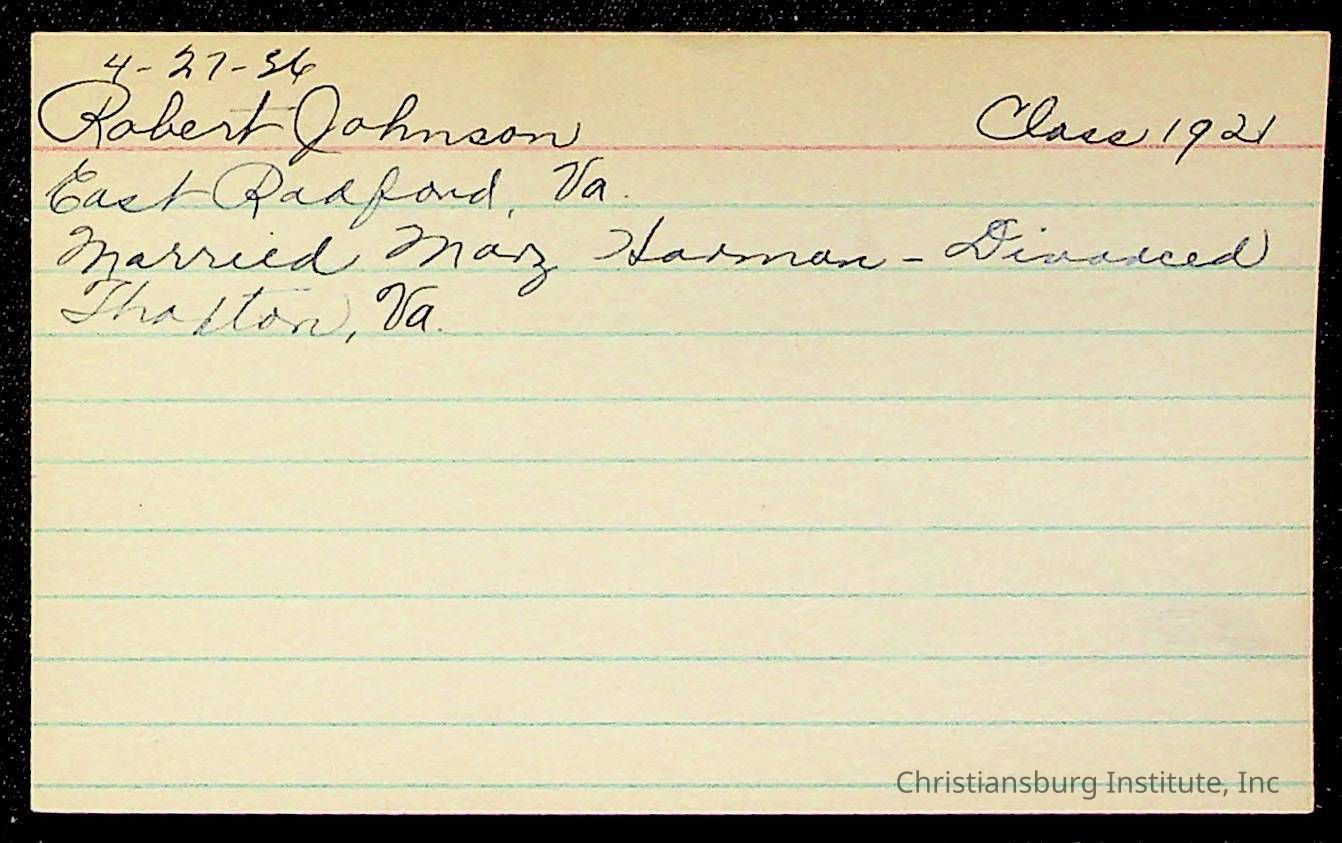 4-27-36
Robert Johnson Class 1921
East Radford, Va.
Married Mary Harman - Divorced
Thaxton, Va.
Christiansburg Institute, Inc